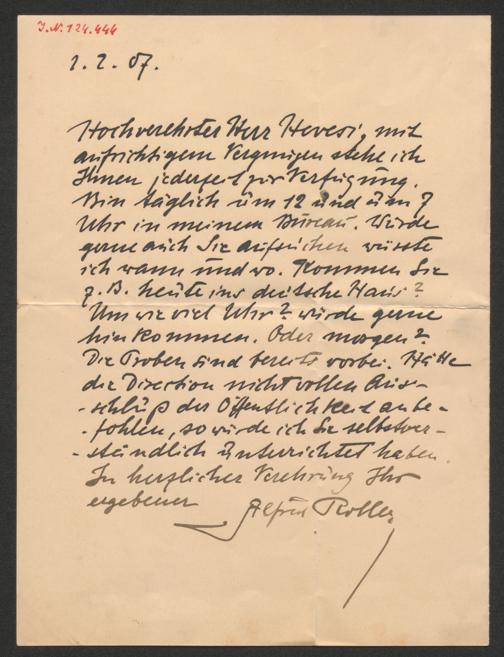 J.N. 124.444
2. 2. 07.
Hochverehrter Herr Hevesi, mit
aufrichtigem Vergnügen stehe ich
Ihnen jederzeit zur Verfügung.
Bin täglich um 12 und um 7
Uhr in meinem Bureau. Würde
gerne auch Sie aufsuchen wüsste
ich wann und wo. Kommen Sie
z. B. heute ins deutsche Haus?
Um wie viel Uhr? würde gerne
hinkommen. Oder morgen?
Die Proben sind bereits vorbei. Hätte
die Direction nicht vollen Aus-
-schluß der Öffentlichkeit anbe-
-fohlen, so würde ich Sie selbstver-
-ständlich unterrichtet haben.
In herzlicher Verehrung Ihr
ergebener Alfred Roller